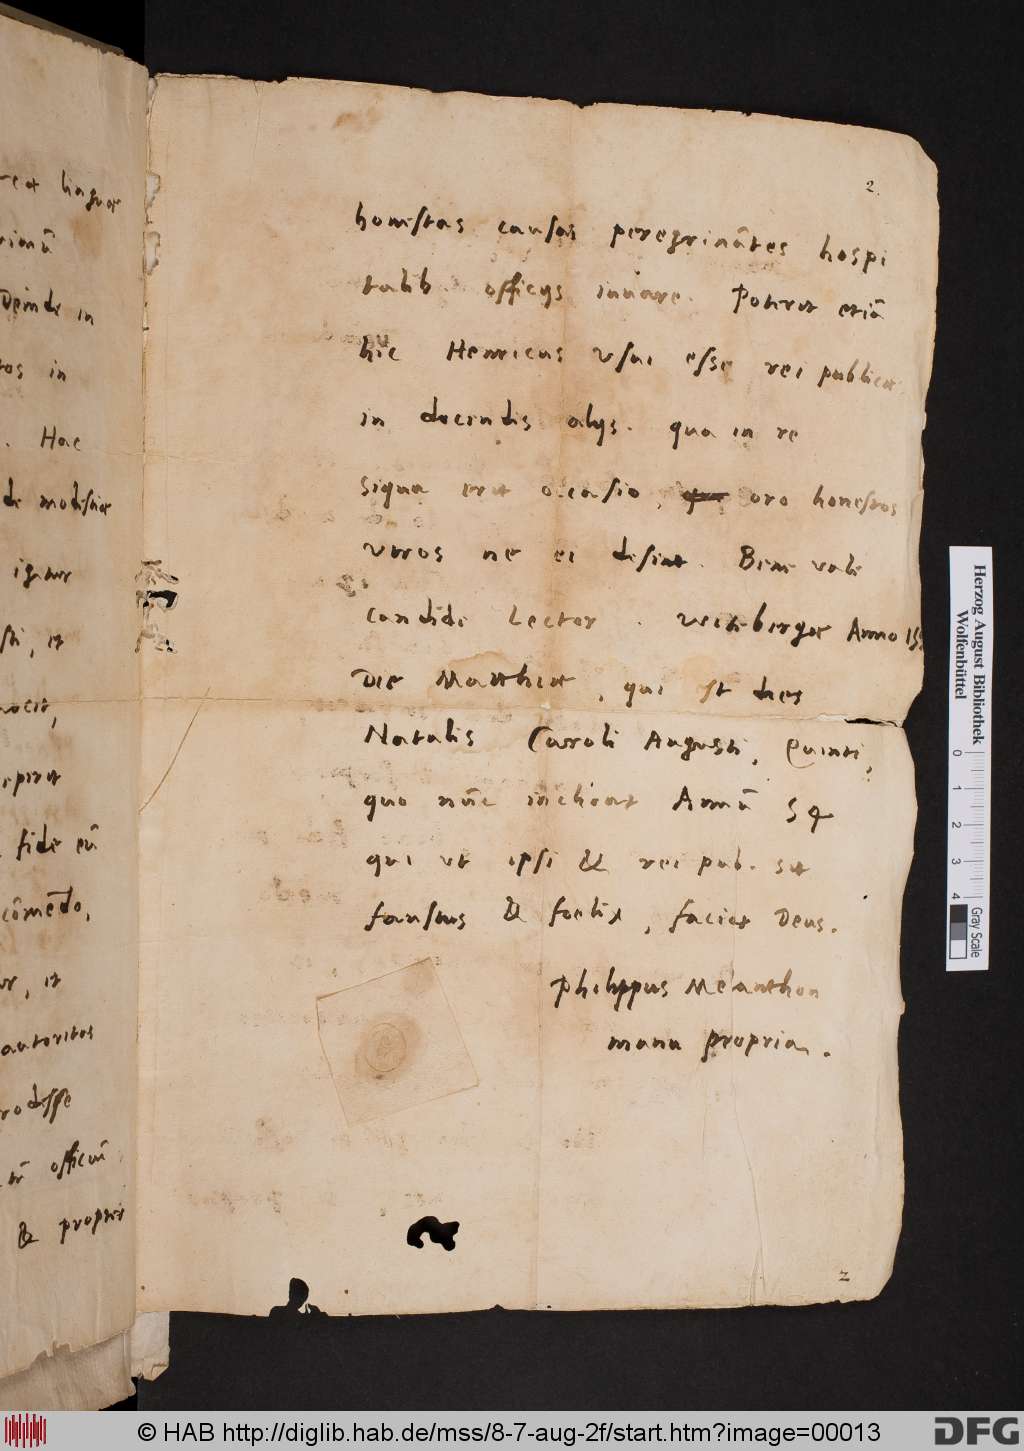 reæ linguæ
rimū
Deinde in
tos in
. Hac
de modestiæ
igitur
sti, et
nocet,
fide eū
cōmēdo,
ur, et
autoritas
rodesse
officiū
& propter
2.
honestas causas peregrinātes hospi
talib officijs iuuare. Poterit etiā
hic Henricus vsui esse rei publicæ
in docendis alijs. qua in re
siqua erit occasio, oro honestos
viros ne ei desint. Bene vale
candide Lector. Witebergæ Anno 15
Die Matthiæ, qui est dies
Natalis Caroli Augusti, Quinti,
quo nūc inchoat Annū 54
qui ut ipsi & rei pub. sit
faustus & foelix, faciat Deus.
Philippus Melanthon
manu propria.
2
Herzog August Bibliothek
Wolfenbüttel
0 1 2 3 4
Gray Scale
© HAB http://diglib.hab.de/mss/8-7-aug-2f/start.htm?image=00013
DFG